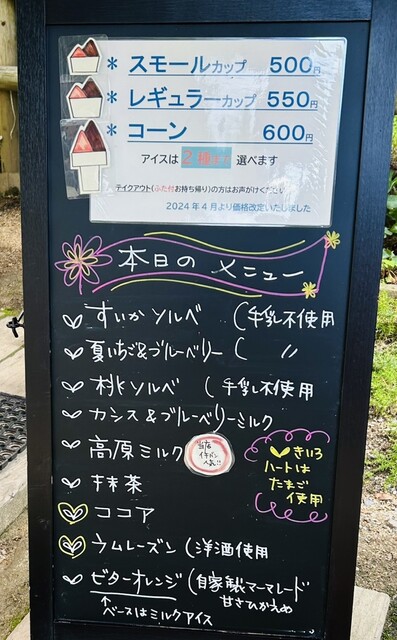 * スモールカップ 500円
* レギュラーカップ 550円
* コーン 600円
アイスは2種まで 選べます
テイクアウト(ふた付お持ち帰り)の方はお声がけください
2024年4月より価格改定いたしました
本日のメニュー
すいかソルベ (牛乳不使用
夏いちご&ブルーベリー ( 〃
桃ソルベ (牛乳不使用
カシス&ブルーベリーミルク
高原ミルク
当店
イチバン
人気!!
抹茶
ココア
ラムレーズン (洋酒使用
ビターオレンジ (自家製マーマレード
甘さひかえめ
ベースはミルクアイス
きいろ
ハートは
たまご
使用